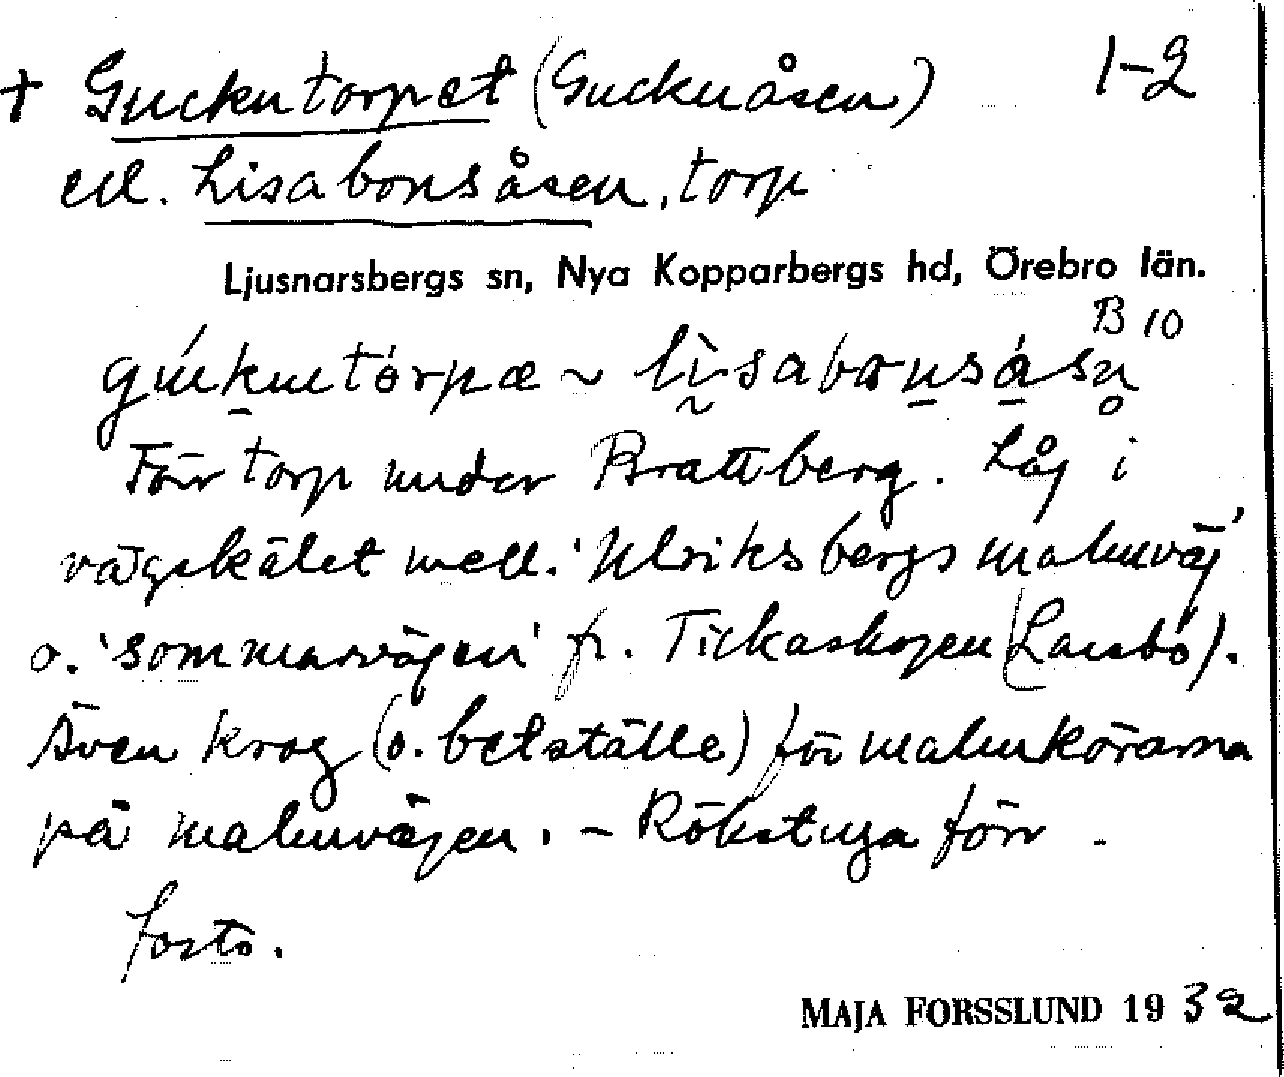 † Guckutorpet (Guckuåsen) 1-2
ell. Lisabonsåsen, torp
Ljusnarsbergs sn, Nya Kopparbergs hd, Örebro län.
B 10
gúkutórpæ ~ lìsabonsásn
Förr torp under Brattberg. Låg i
vägskälet mell. 'Ulriksbergs malmväg'
o. 'sommarvägen' fr. Tickaskogen (Laxbo).
Även krog (o. betställe) för malmkörarna
på malmvägen. - Rökstuga förr -
forts.
MAJA FORSSLUND 1932